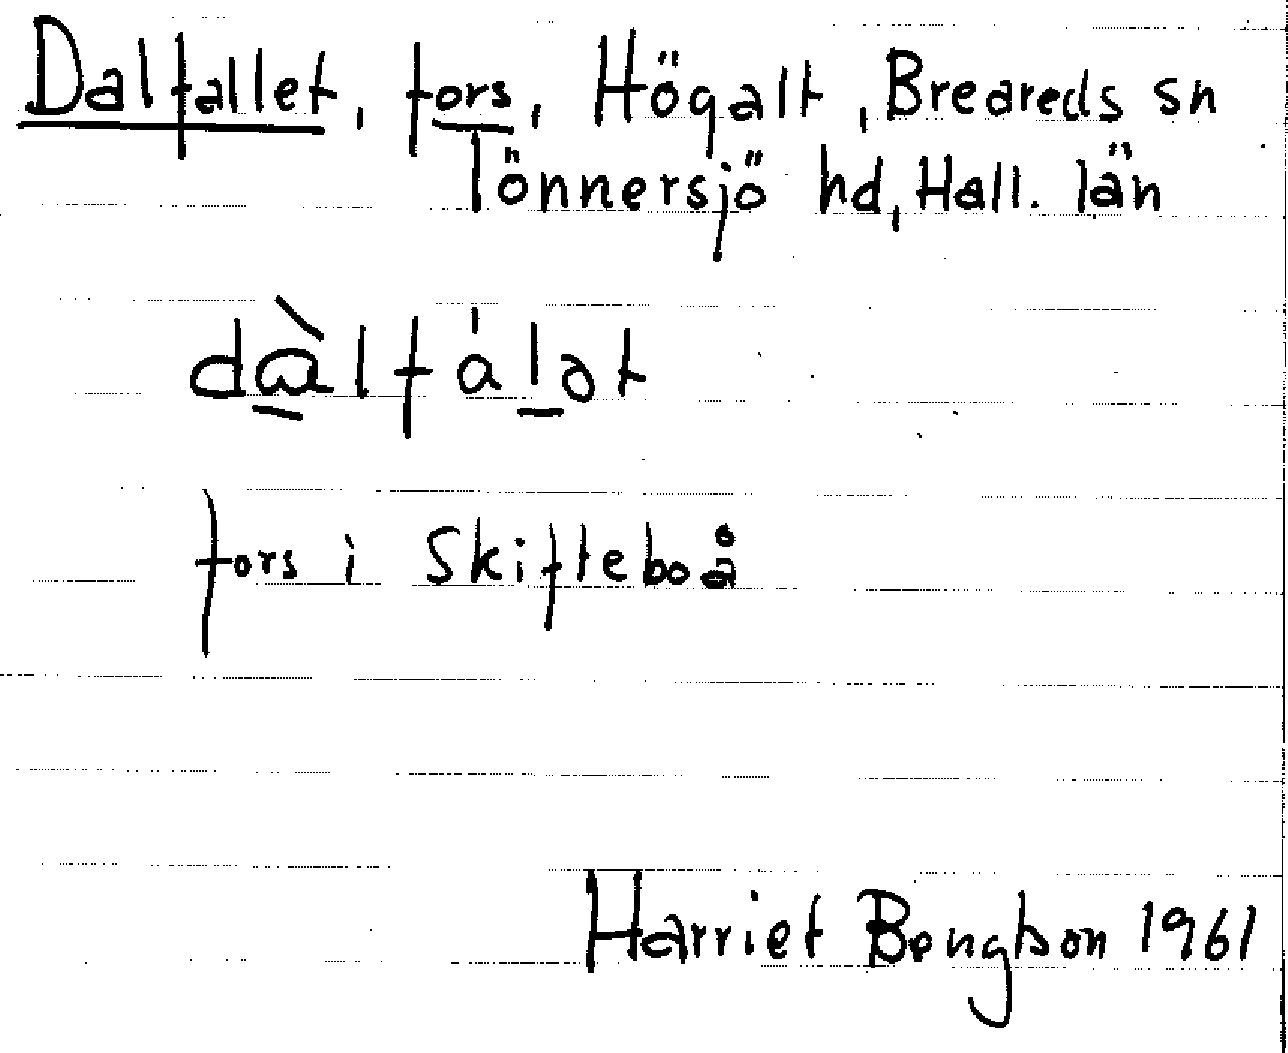 Dalfallet, fors, Högalt, Breareds sn
Tönnersjö hd, Hall. län
dàlfáḷət
fors i Skifteboå
Harriet Bengtson 1961